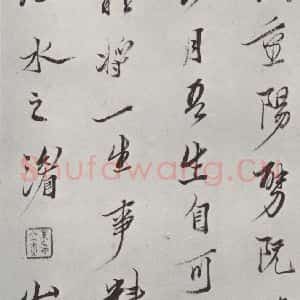 重陽琴阮
月吾生自可
將一生事
水之湄
Shufawang.Cn